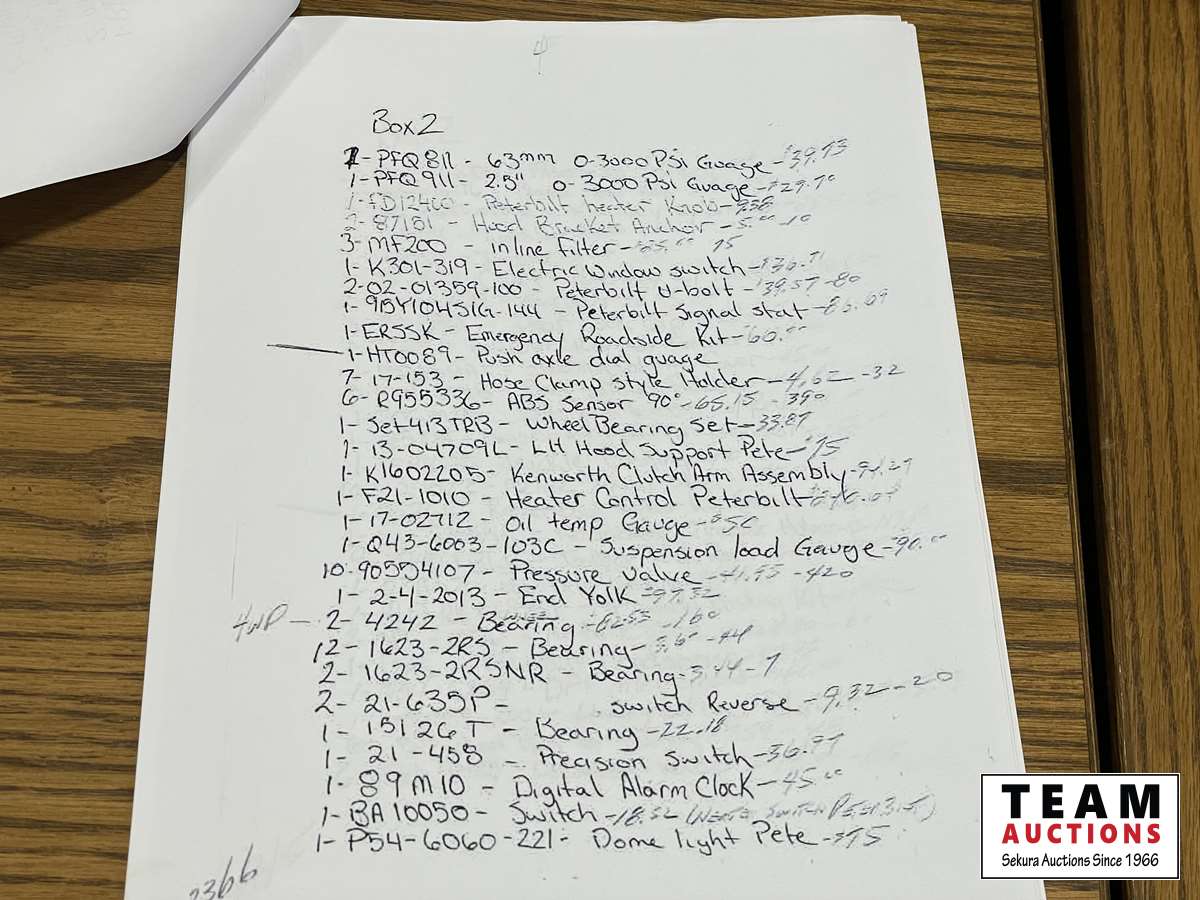 4
Box 2
1- PFQ 811 - 63mm 0-3000 Psi Guage - $39.73
1- PFQ 911 - 2.5" 0-3000 Psi Guage - $29.70
1- FD12400 - Peterbilt heater Knob -
2- 87151 - Hood Bracket Anchor - 5.00 - 10
3- MF200 - inline filter - 75
1- K301-319 - Electric Window switch - $36.71
2- 02-01359-100 - Peterbilt U-bolt - $39.57 - 80
1- 95Y104SIG-144 - Peterbilt Signal stat - 86.69
1- ERSSK - Emergency Roadside Kit - $60.00
1- HT0089 - Push axle dial guage
7- 17-153 - Hose Clamp style Holder - 4.62 - 32
6- R955336 - ABS Sensor 90° - 65.15 - 390
1- Set413TRB - Wheel Bearing set - 33.87
1- 13-04709L - LH Hood Support Pete - $75
1- K1602205 - Kenworth Clutch Arm Assembly - 94.29
1- F21-1010 - Heater Control Peterbilt -
1- 17-02712 - Oil temp Gauge - $50
1- Q43-6003-103C - Suspension load Gauge - $90.00
10- 90554107 - Pressure valve - 41.95 - 420
1- 2-4-2013 - End Yolk - $97.32
4WP - 2- 4242 - Bearing - 82.55 - 160
12- 1623-2RS - Bearing - 3.60 - 44
2- 1623-2RSNR - Bearing - 3.44 - 7
2- 21-635P - switch Reverse - 9.32 - 20
1- 15126T - Bearing - 22.18
1- 21-458 - Precision switch - 36.97
1- 89M10 - Digital Alarm Clock - 45.00
1- BA10050 - Switch - 18.52
1- P54-6060-221 - Dome light Pete - $75
2366
TEAM
AUCTIONS
Sekura Auctions Since 1966